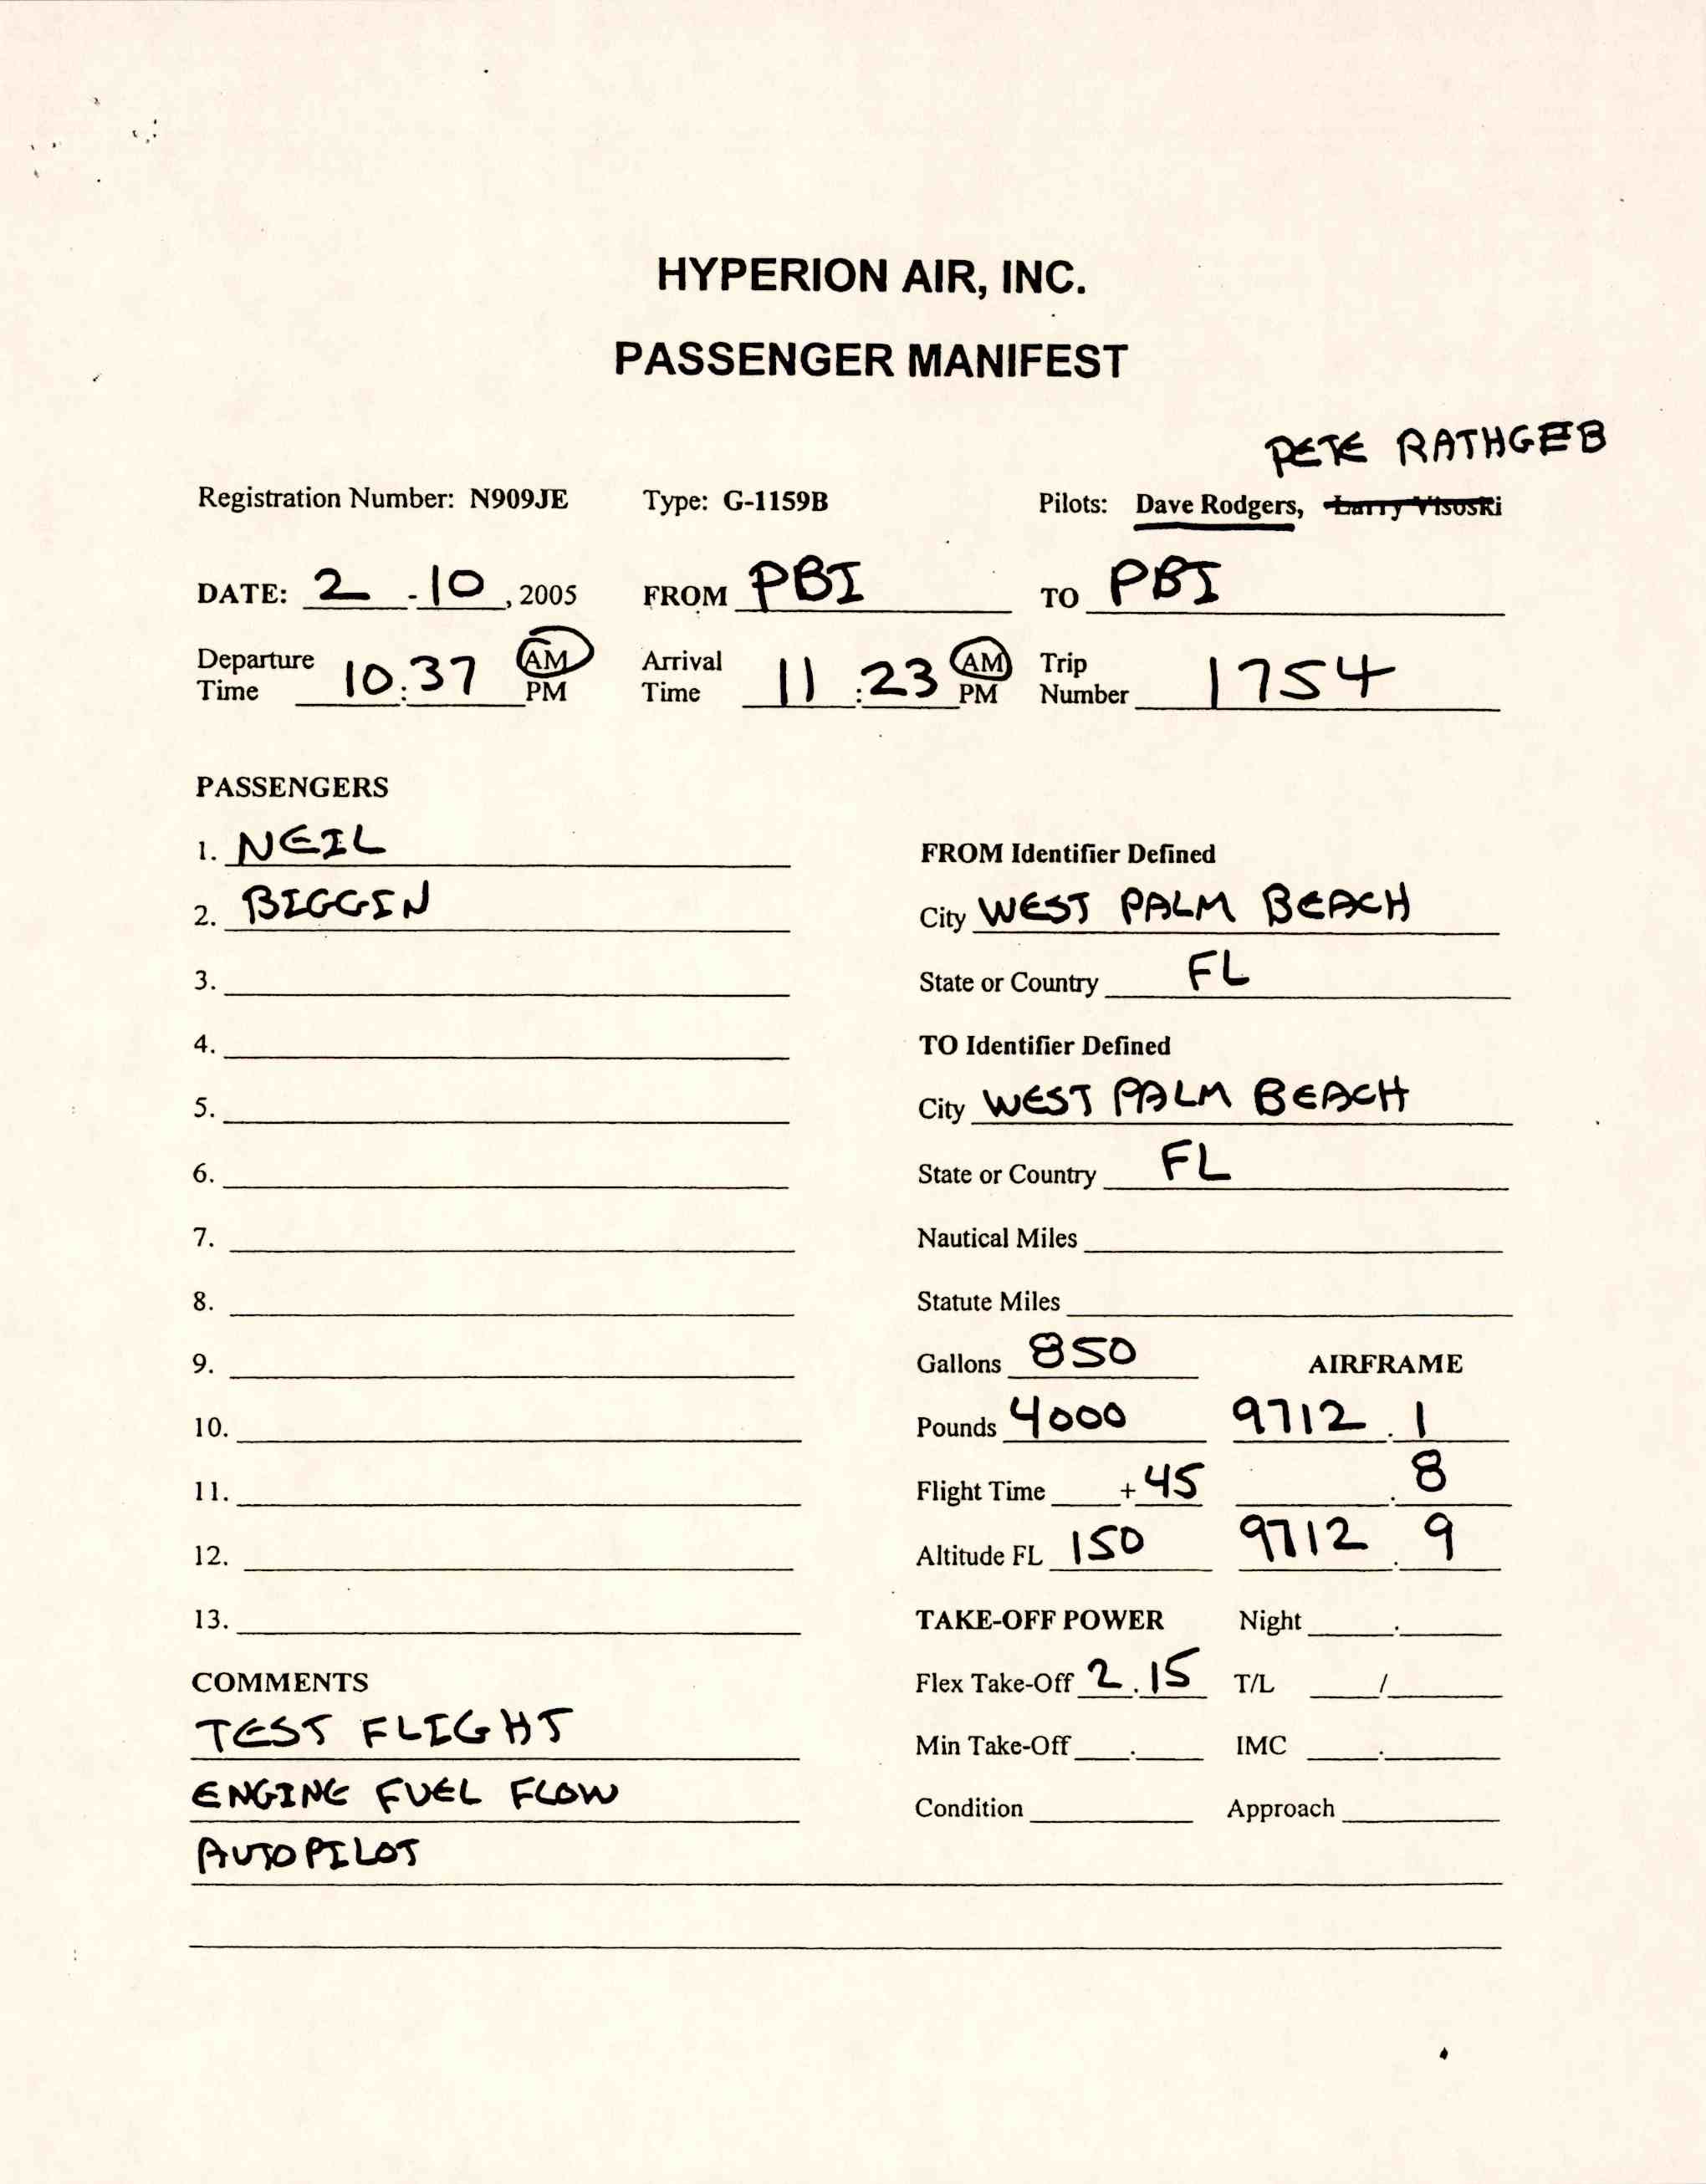 HYPERION AIR, INC.
PASSENGER MANIFEST
PETE RATHGEB
Registration Number: N909JE Type: G-1159B Pilots: Dave Rodgers, Larry Visoski
DATE: 2 - 10, 2005 FROM PBI TO PBI
Departure Time 10:37 AM PM Arrival Time 11:23 AM PM Trip Number 1754
PASSENGERS
1. NEIL
FROM Identifier Defined
2. BIGGIN
City WEST PALM BEACH
3.
State or Country FL
4.
TO Identifier Defined
5.
City WEST PALM BEACH
6.
State or Country FL
7.
Nautical Miles
8.
Statute Miles
9.
Gallons 850 AIRFRAME
10.
Pounds 4000 9712.1
11.
Flight Time + 45 .8
12.
Altitude FL 150 9712.9
13.
TAKE-OFF POWER Night .
COMMENTS
Flex Take-Off 2.15 T/L /
TEST FLIGHT
Min Take-Off . IMC .
ENGINE FUEL FLOW
Condition Approach
AUTOPILOT